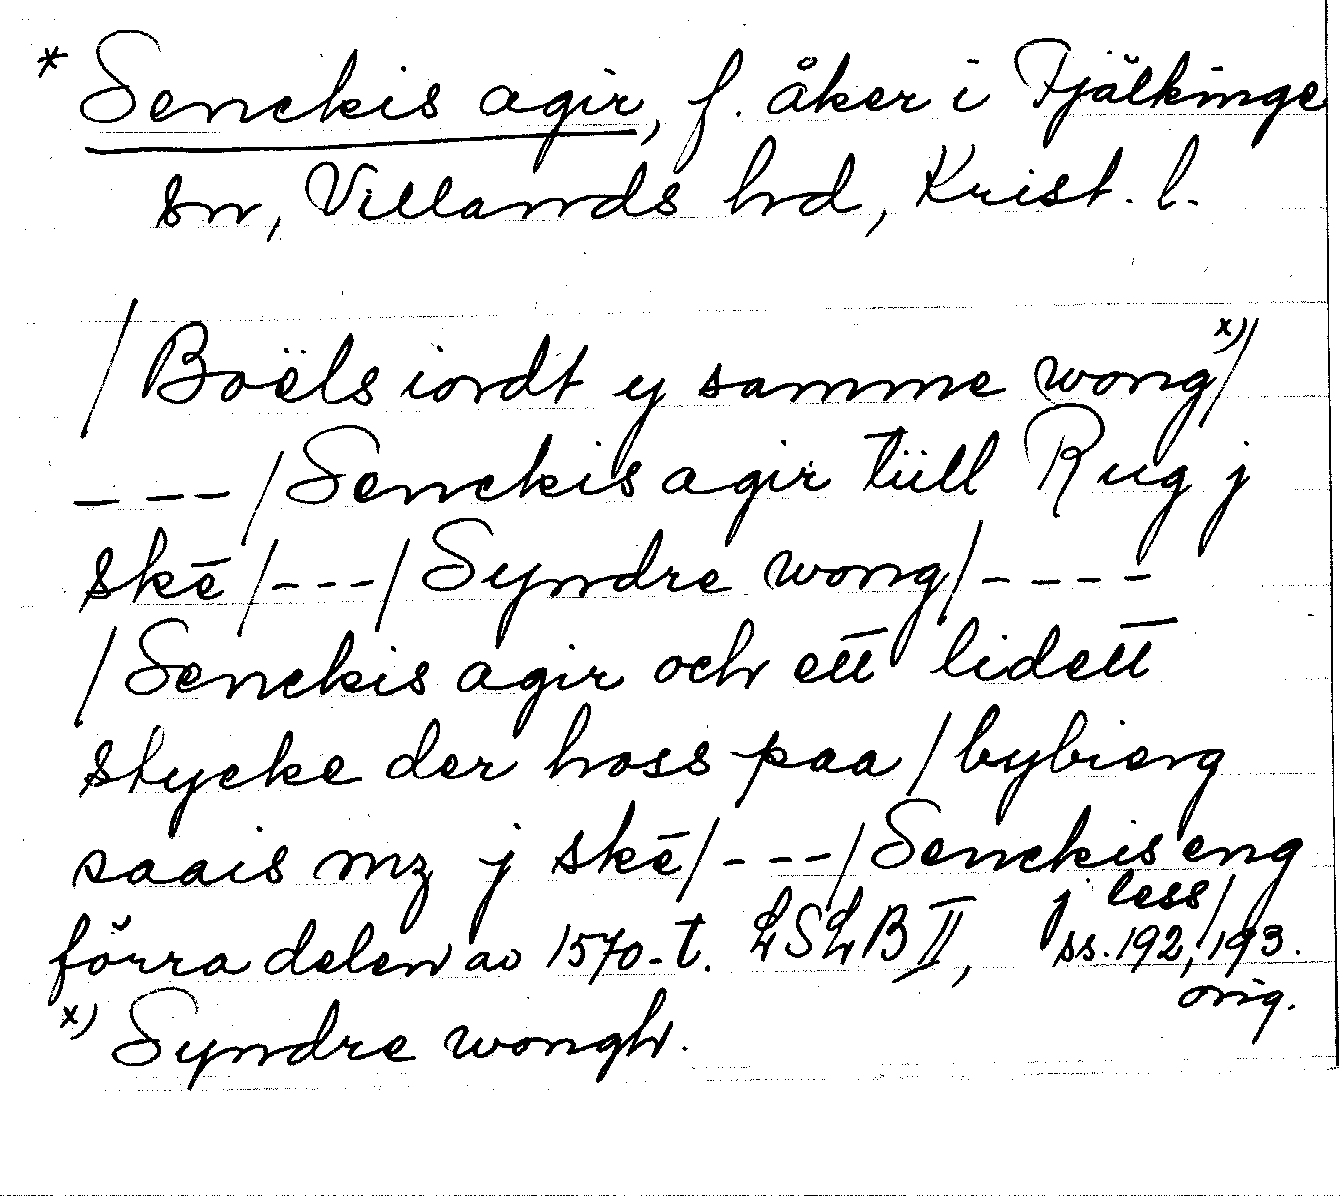 * Senckis agir, f. åker i Fjälkinge
sn, Villands hrd, Krist. l.
/Boëls iordt y samme wong x)/
_ _ _ /Senckis agir tiill Rug j
skē/---/Syndre wong/----
/Senckis agir och ett lidett
stycke der hoss paa /bybierg
saais mz j skē/---/Senckis eng
j less/
förra delen av 1570-t. LSLB II, ss. 192, 193.
orig.
x) Syndre wongh.